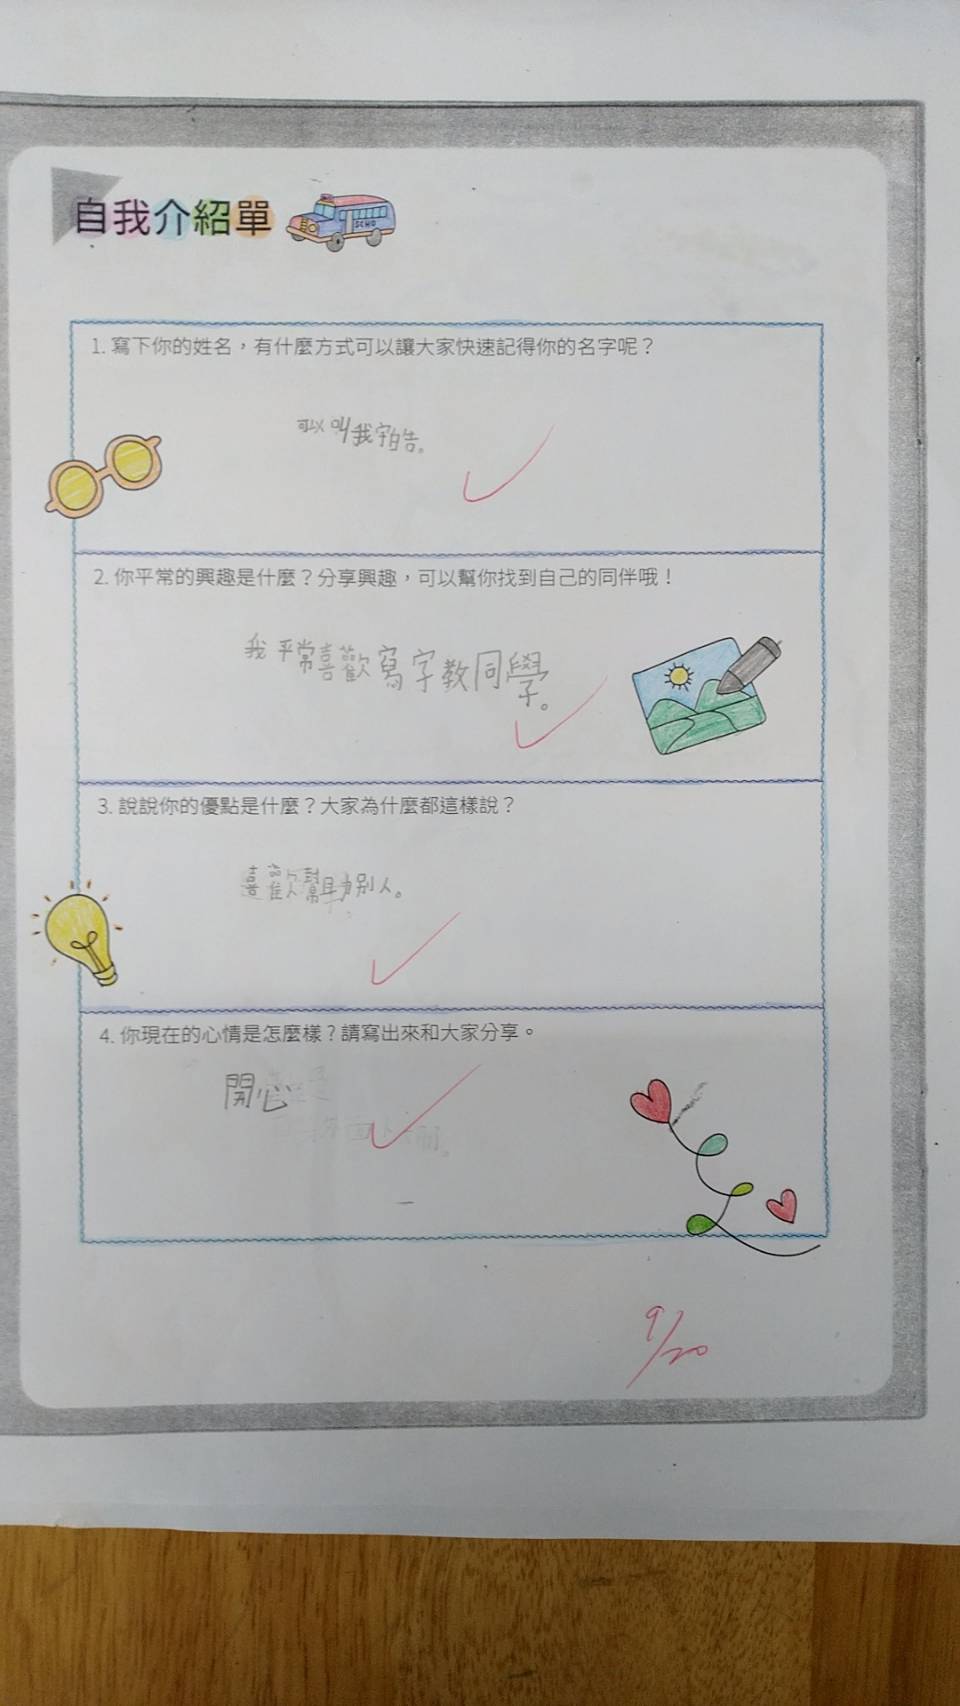 自我介紹單
SCHO
1. 寫下你的姓名，有什麼方式可以讓大家快速記得你的名字呢？
可以叫我宇皓。
2. 你平常的興趣是什麼？分享興趣，可以幫你找到自己的同伴哦！
我平常喜歡寫字教同學。
3. 說說你的優點是什麼？大家為什麼都這樣說？
喜歡幫助別人。
4. 你現在的心情是怎麼樣？請寫出來和大家分享。
開心
9/20